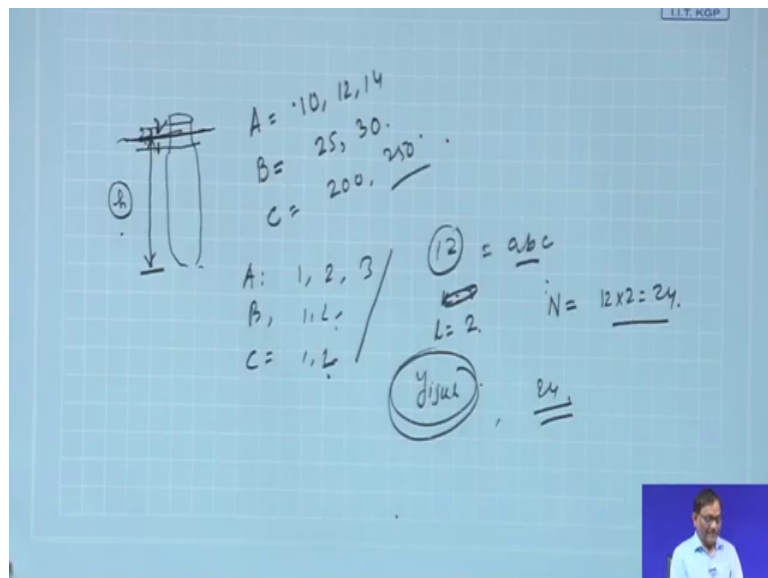 I.I.T. KGP
A = 10, 12, 14
B = 25, 30.
C = 200, 250
h
A: 1, 2, 3
B, 1, 2,
C = 1, 2
12 = abc
L = 2.
N = 12 x 2 = 24.
Yijkl, 24.